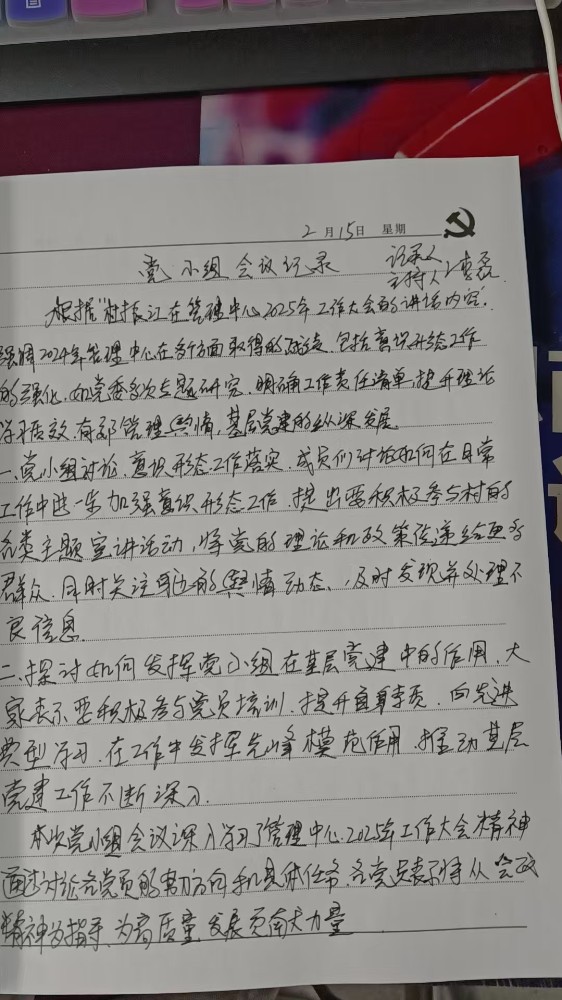 2月15日 星期
党小组会议记录 记录人
主持人
根据"村长江在管理中心2025年工作大会的讲话内容".
强调2024年管理中心在各个方面取得的成绩,包括意识形态工作
的强化.如党委多次专题研究.明确工作责任清单.提升理论
学习质效.有部管理舆情,基层党建的纵深发展.
一.党小组讨论.意识形态工作落实.成员们讨论如何在日常
工作中进一步加强意识形态工作.提出要积极参与村的
各类主题宣讲活动,将党的理论和政策传递给更多
群众.同时关注身边的舆情动态、及时发现并处理不
良信息.
二.探讨如何发挥党小组在基层党建中的作用.大
家表示要积极参与党员培训.提升自身素质.向先进
典型学习.在工作中发挥先峰模范作用.推动基层
党建工作不断深入.
本次党小组会议深入学习了管理中心2025年工作大会精神
通过讨论各党员的努力方向和具体任务.各党员表示将从会议
精神为指导.为高质量发展贡献力量